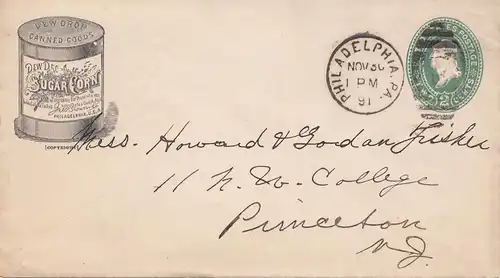 DEW DROP
CANNED GOODS
DEW DROP
SUGAR CORN
PHILADELPHIA, U.S.A.
(COPYRIGHT)
PHILADELPHIA, PA.
NOV 30
PM
91
U.S. POSTAGE
Mess. Howard & Gordan Fisker
11 N. W. College
Princeton
N J.